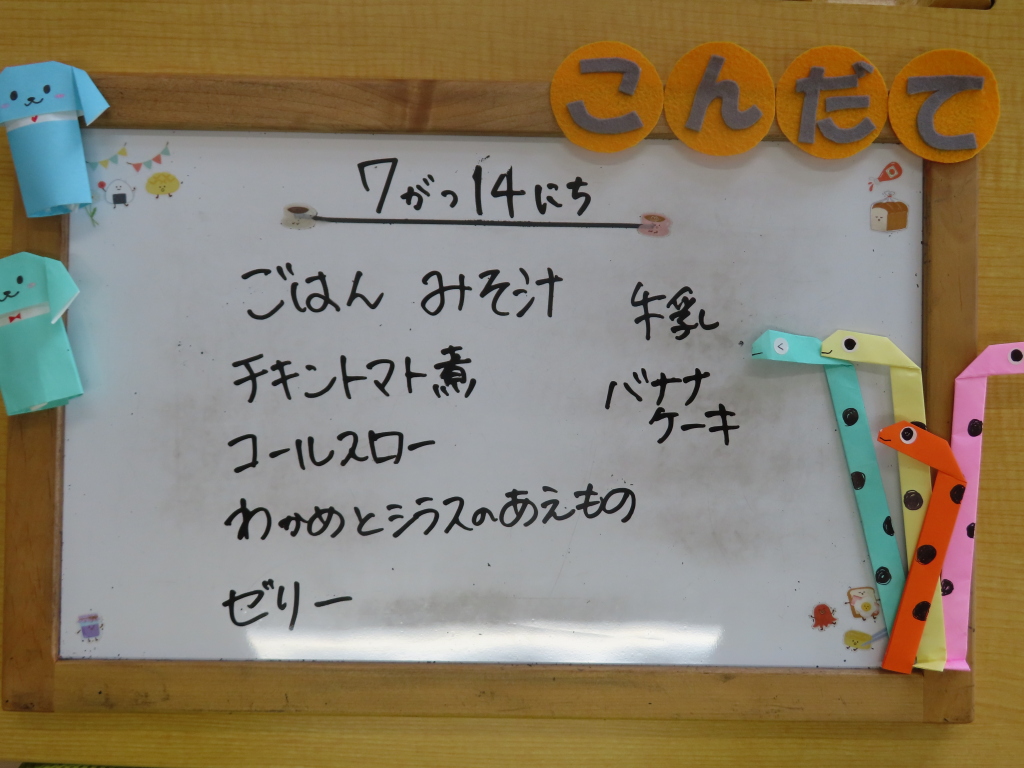 こんだて
7がっ14にち
ごはん みそ汁
チキントマト煮
コールスロー
わかめとシラスのあえもの
ゼリー
牛乳
バナナ
ケーキ